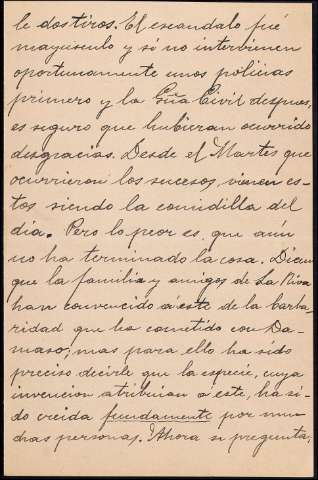 le dos tiros. El escandalo fué
mayúsculo y si no intervienen
oportunamente unos policias
primero y la Gña Civil despues,
es seguro que hubieran ocurrido
desgracias. Desde el Martes que
ocurrieron los sucesos, vienen es-
tos siendo la comidilla del
dia. Pero lo peor es, que aún
no ha terminado la cosa. Dicen
que la familia y amigos de La Riva
han convencido a éste de la barba-
ridad que ha cometido con Da-
maso, mas para ello ha sido
preciso decirle que la especie, cuya
invencion atribuian a este, ha si-
do creida fecundamente por mu-
chas personas. Ahora se pregunta,